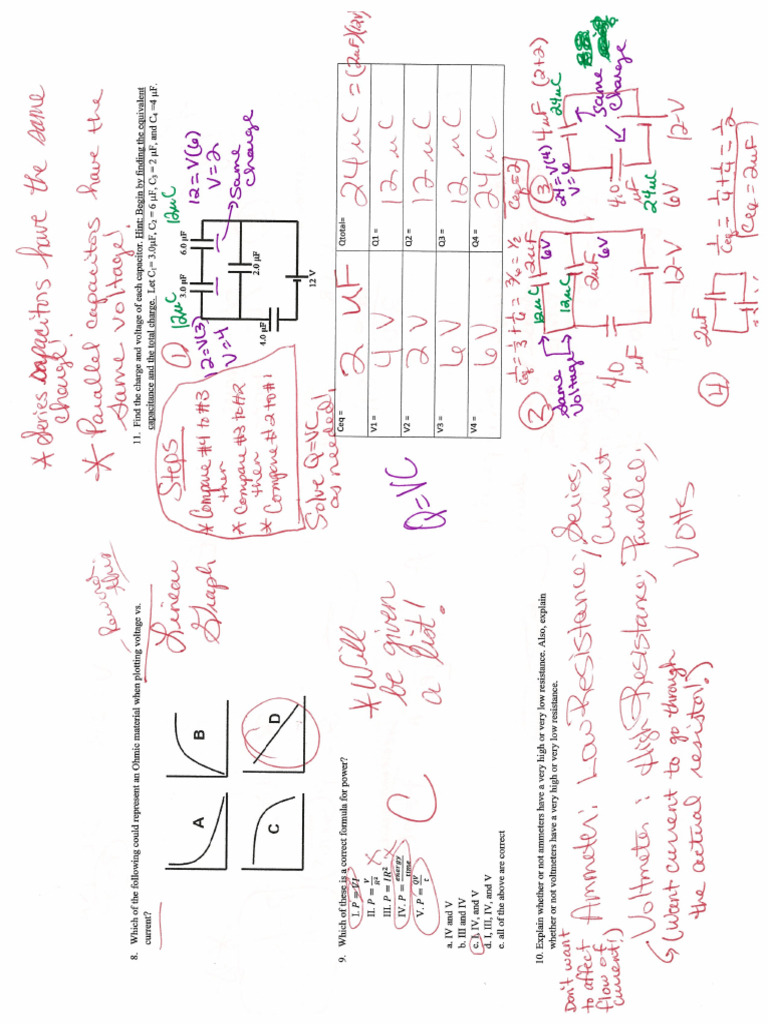 8. Which of the following could represent an Ohmic material when plotting voltage vs.
current?
Reword
this
Linear
Graph
A
B
C
D
9. Which of these is a correct formula for power?
I. P = VI
II. P = V/R²
III. P = IR² X
IV. P = energy/time
V. P = QV/t
a. IV and V
b. III and IV
c. I, IV, and V
d. I, III, IV, and V
e. all of the above are correct
C
* Will
be given
a list!
10. Explain whether or not ammeters have a very high or very low resistance. Also, explain
whether or not voltmeters have a very high or very low resistance.
Don't want
to affect
flow of
current!)
Ammeter: Low Resistance; Series;
Current
Voltmeter: High Resistance; Parallel;
Volts
(Want current to go through
the actual resistor!)
* Series capacitors have the same
charge!
* Parallel capacitors have the
same voltage!
11. Find the charge and voltage of each capacitor. Hint: Begin by finding the equivalent
capacitance and the total charge. Let C₁= 3.0μF, C₂ = 6 μF, C₃ = 2 μF, and C₄ =4 μF.
Steps
* Compare #4 to #3
then
* Compare #3 to #2
then
* Compare #2 to #1
Solve Q=VC
as needed!
1
12μC
12μC
12=V(3)
V=4
12=V(6)
V=2
3.0 μF
6.0 μF
2.0 μF
4.0 μF
12 V
Same
charge
Ceq = 2 μF
Qtotal= 24 μC = (2μF)(12V)
V1 = 4 V
Q1 = 12 μC
V2 = 2 V
Q2 = 12 μC
V3 = 6 V
Q3 = 12 μC
V4 = 6 V
Q4 = 24 μC
Q=VC
2
1/Ceq = 1/3 + 1/6 = 3/6 = 1/2
Ceq=2
Same
Voltage
12μC
2μF
6V
12μC
2μF
6V
4.0
μF
12-V
3
4μF (2+2)
24μC
24=V(4)
V=6
Same
Charge
4.0
μF
24μC
6V
12-V
4
2μF
1/Ceq = 1/4 + 1/4 = 1/2
Ceq = 2μF